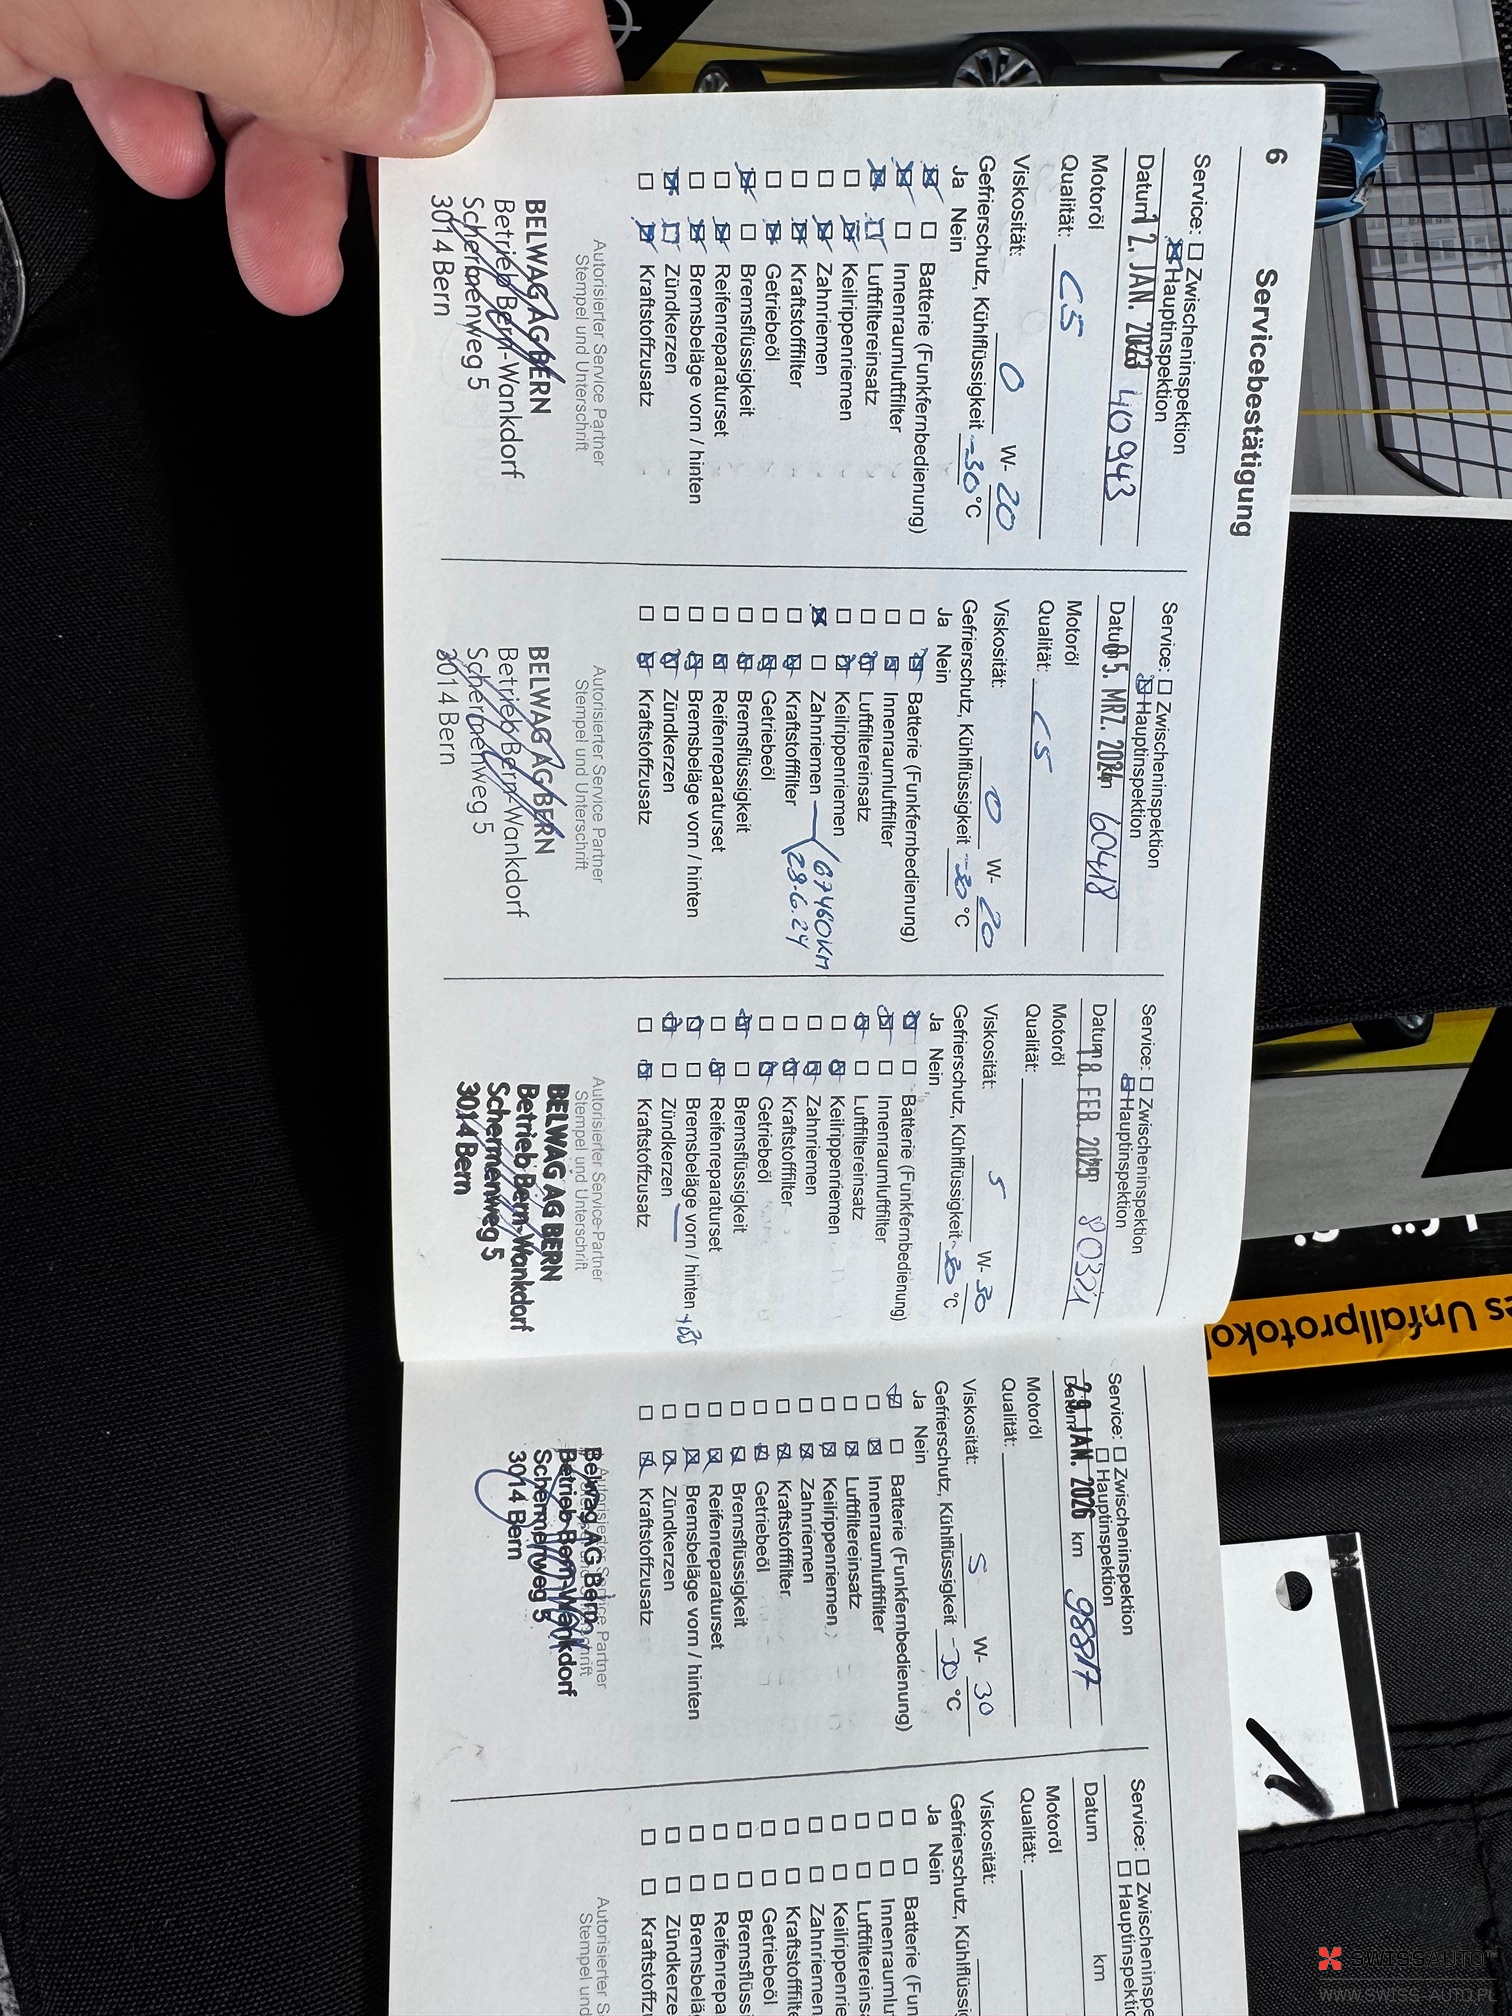 6
Servicebestätigung
Service: Zwischeninspektion
Hauptinspektion
Datum 12. JAN. 2023 40943
Motoröl
Qualität: C5
Viskosität: 0 W- 20
Gefrierschutz, Kühlflüssigkeit -30 °C
Ja Nein
Batterie (Funkfernbedienung)
Innenraumluftfilter
Luftfiltereinsatz
Keilrippenriemen
Zahnriemen
Kraftstofffilter
Getriebeöl
Bremsflüssigkeit
Reifenreparaturset
Bremsbeläge vorn / hinten
Zündkerzen
Kraftstoffzusatz
Autorisierter Service Partner
Stempel und Unterschrift
BELWAG AG BERN
Betrieb Bern-Wankdorf
Schermenweg 5
3014 Bern
Service: Zwischeninspektion
Hauptinspektion
Datum 05. MRZ. 2024 60418
Motoröl
Qualität: C5
Viskosität: 0 W- 20
Gefrierschutz, Kühlflüssigkeit -30 °C
Ja Nein
Batterie (Funkfernbedienung)
Innenraumluftfilter
Luftfiltereinsatz
Keilrippenriemen
Zahnriemen 67460KM
Kraftstofffilter 28.6.24
Getriebeöl
Bremsflüssigkeit
Reifenreparaturset
Bremsbeläge vorn / hinten
Zündkerzen
Kraftstoffzusatz
Autorisierter Service Partner
Stempel und Unterschrift
BELWAG AG BERN
Betrieb Bern-Wankdorf
Schermenweg 5
3014 Bern
Service: Zwischeninspektion
Hauptinspektion
Datum 18. FEB. 2025 80321
Motoröl
Qualität:
Viskosität: 5 W- 30
Gefrierschutz, Kühlflüssigkeit -30 °C
Ja Nein
Batterie (Funkfernbedienung)
Innenraumluftfilter
Luftfiltereinsatz
Keilrippenriemen
Zahnriemen
Kraftstofffilter
Getriebeöl
Bremsflüssigkeit
Reifenreparaturset
Bremsbeläge vorn / hinten
Zündkerzen
Kraftstoffzusatz
Autorisierter Service-Partner
Stempel und Unterschrift
BELWAG AG BERN
Betrieb Bern-Wankdorf
Schermenweg 5
3014 Bern
Service: Zwischeninspektion
Hauptinspektion
Datum 29. JAN. 2026 km 98817
Motoröl
Qualität:
Viskosität: 5 W- 30
Gefrierschutz, Kühlflüssigkeit -30 °C
Ja Nein
Batterie (Funkfernbedienung)
Innenraumluftfilter
Luftfiltereinsatz
Keilrippenriemen
Zahnriemen
Kraftstofffilter
Getriebeöl
Bremsflüssigkeit
Reifenreparaturset
Bremsbeläge vorn / hinten
Zündkerzen
Kraftstoffzusatz
Autorisierter Service Partner
Belwag AG Bern
Betrieb Bern-Wankdorf
Schermenweg 5
3014 Bern
Service: Zwischeninspe
Hauptinspekti
Datum km
Motoröl
Qualität:
Viskosität:
Gefrierschutz, Kühlflüssig
Ja Nein
Batterie (Fun
Innenraumlu
Luftfiltereins
Keilrippenrie
Zahnriemen
Kraftstofffilte
Getriebeöl
Bremsflüss
Reifenrepa
Bremsbelä
Zündkerze
Kraftstoffz
Autorisierter S
Stempel und
es Unfallprotoko
1
SWISSAUTO
WWW.SWISS-AUTO.PL